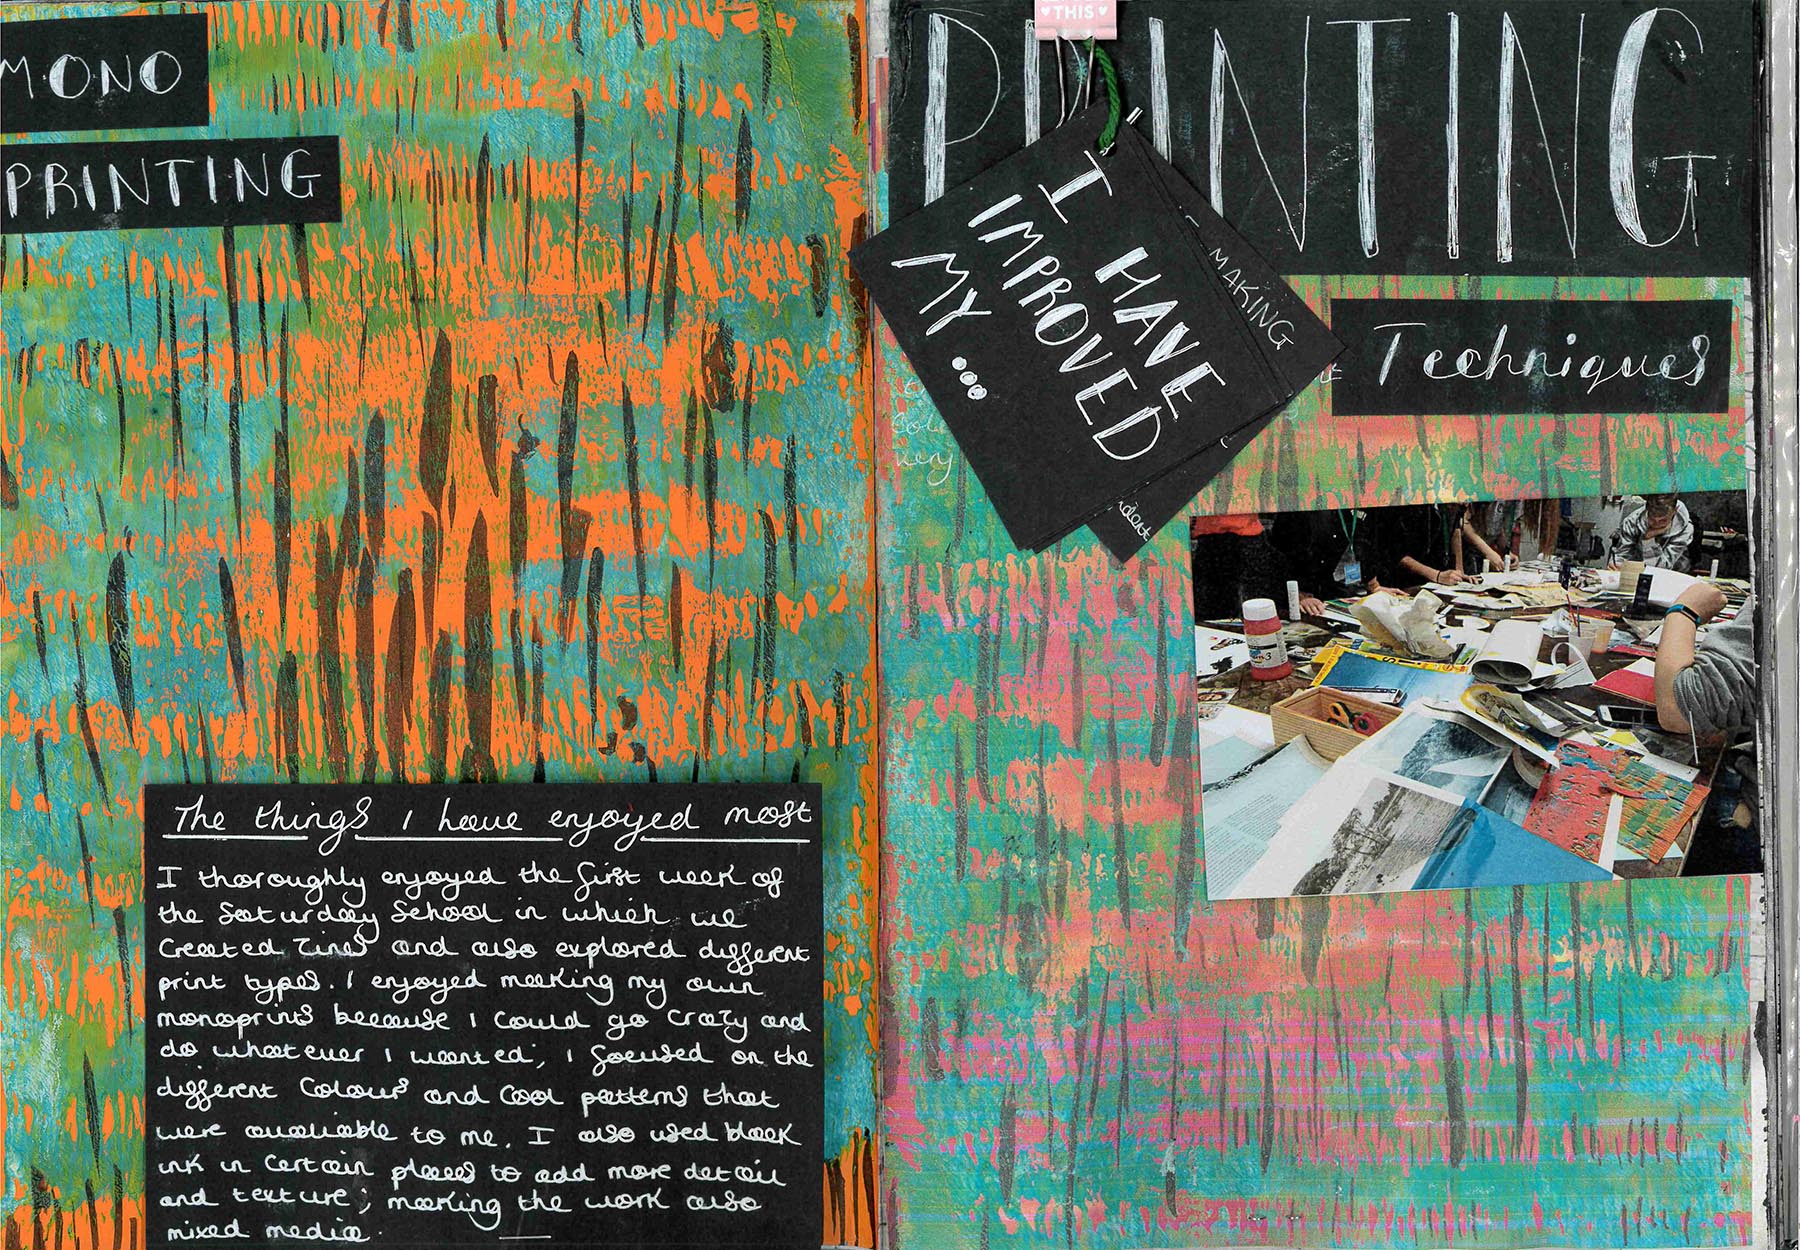 MONO
PRINTING
The things I have enjoyed most
I thoroughly enjoyed the first week of
the Saturday School in which we
Created Zines and also explored different
print types. I enjoyed making my own
monoprints because I could go crazy and
do whatever I wanted; I focused on the
different Colours and Cool patterns that
were available to me. I also used black
ink in certain places to add more detail
and texture; making the work also
mixed media.
THIS
PRINTING
I HAVE
IMPROVED
MY...
MAKING
Techniques
very